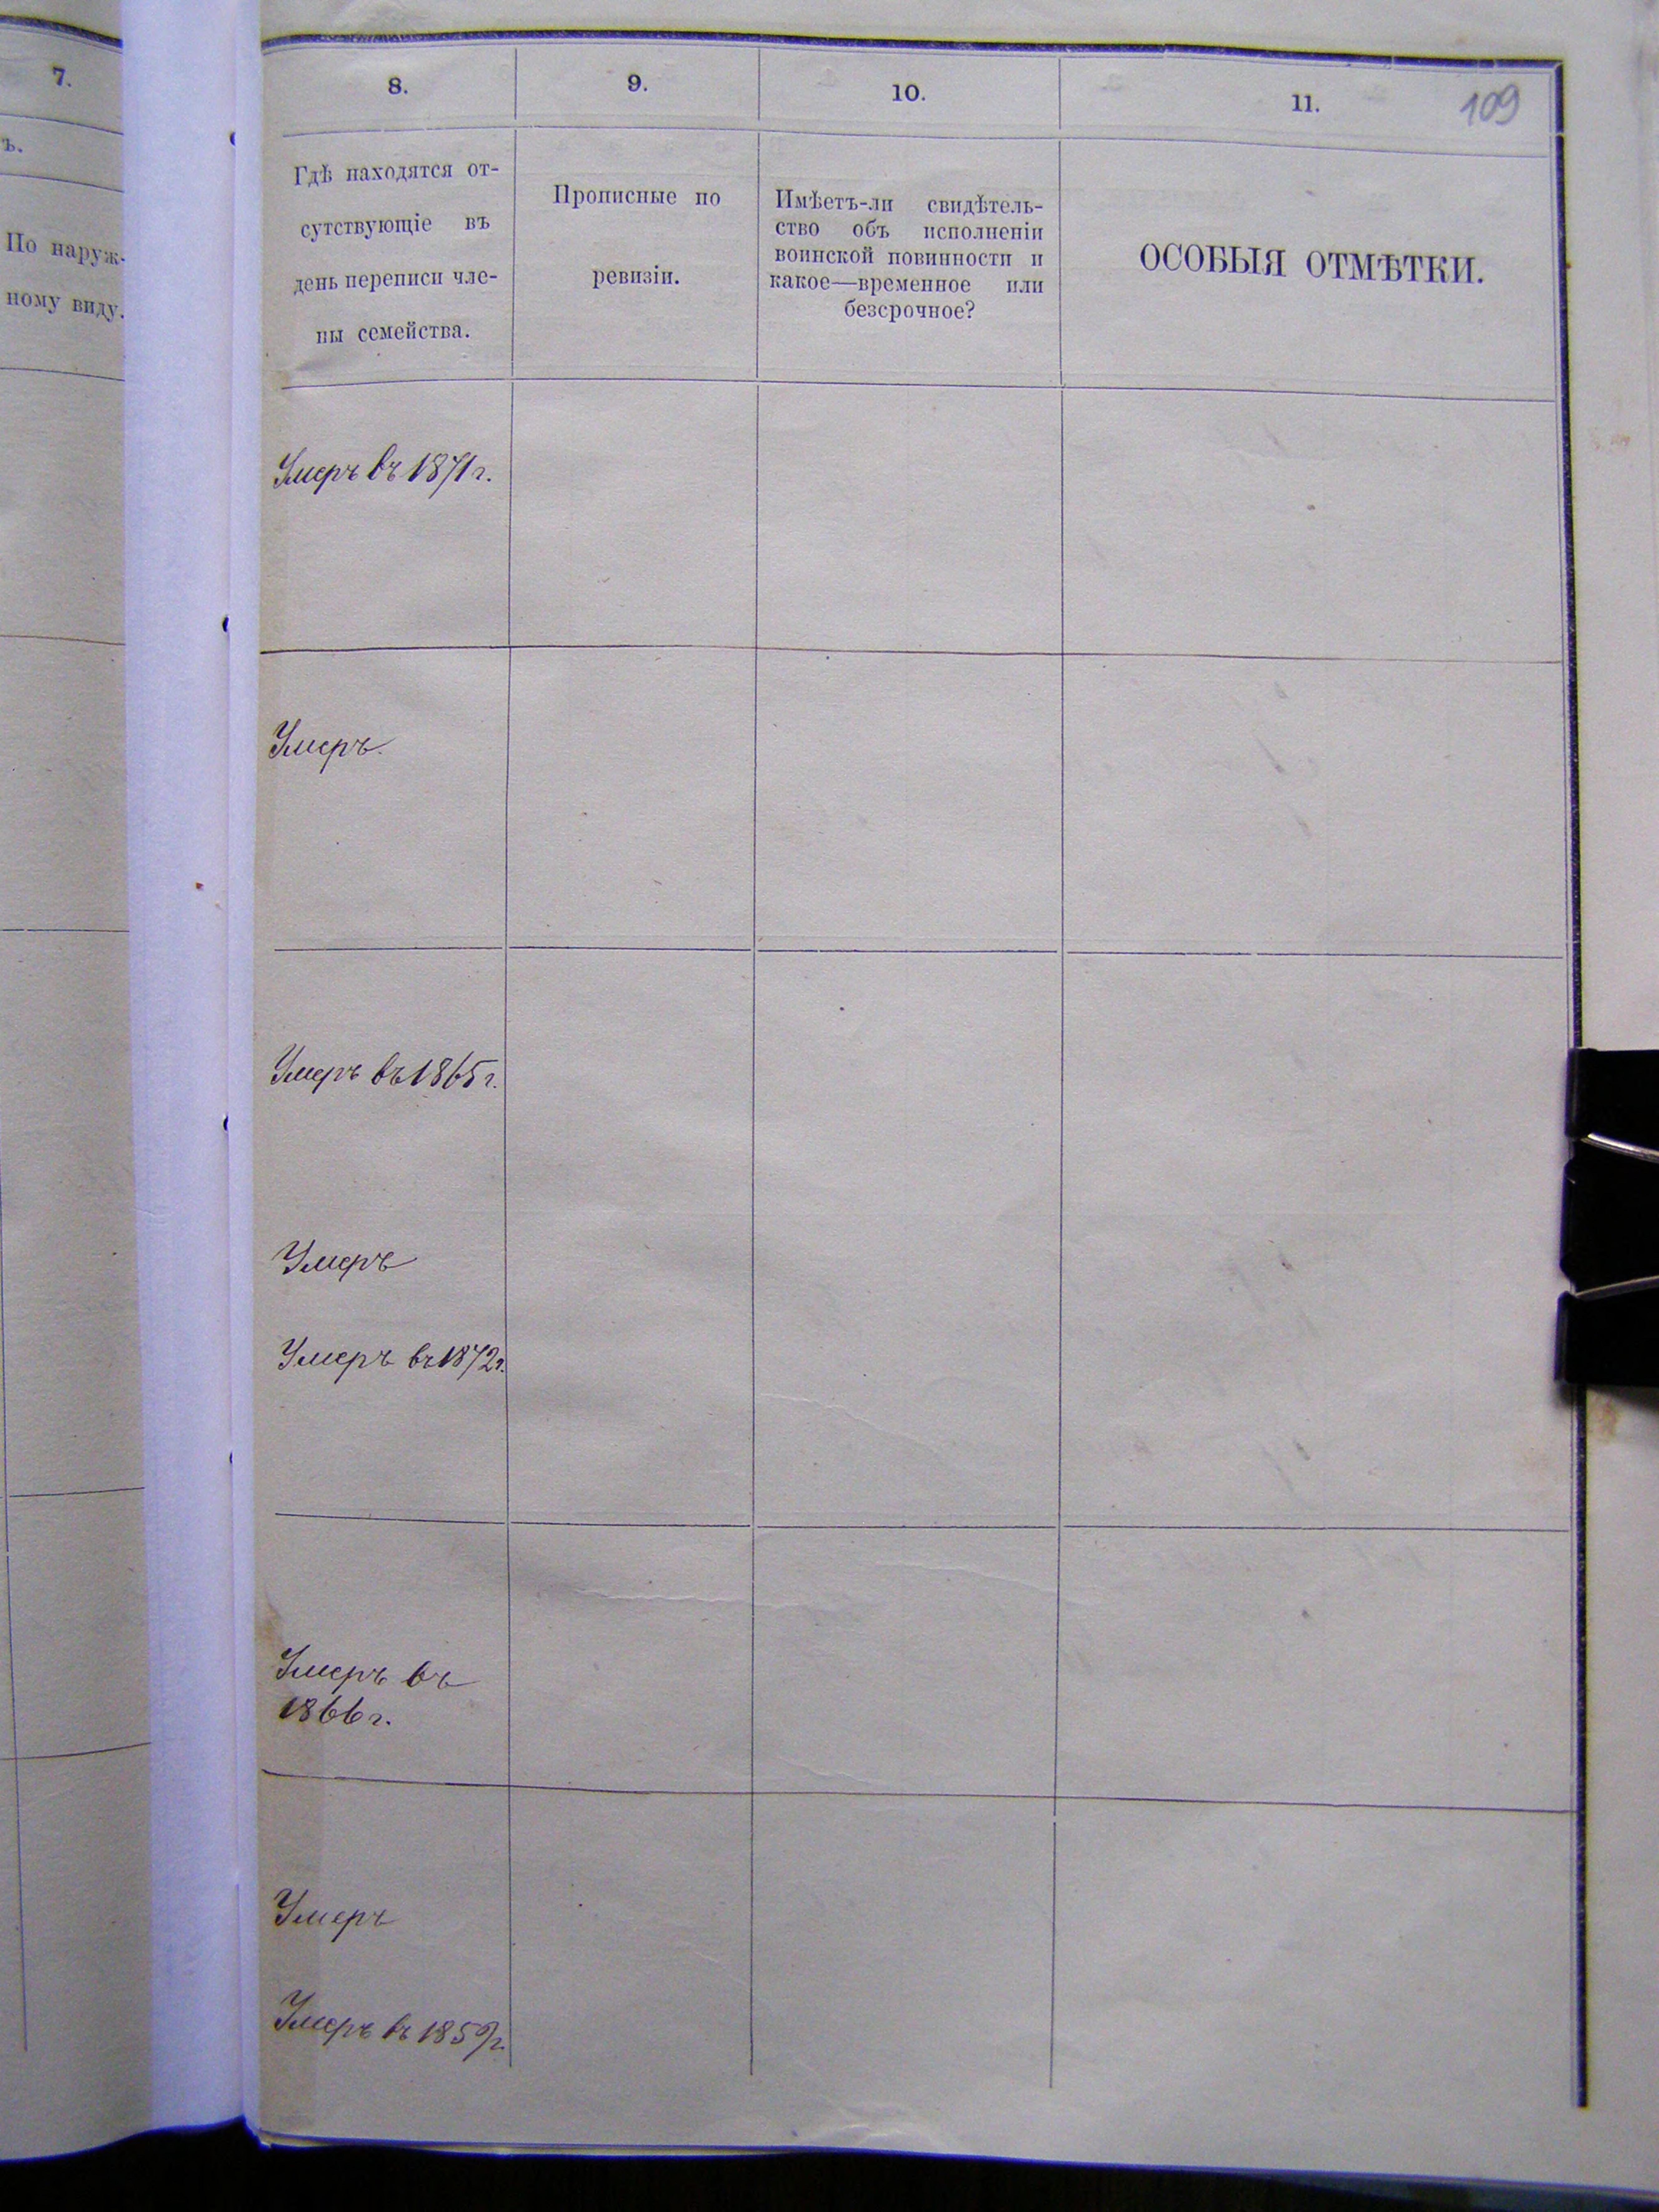 7.
ъ.
По наруж-
ному виду.
8.
9.
10.
11.
109
Гдѣ находятся от-
сутствующіе въ
день переписи чле-
ны семейства.
Прописные по
ревизіи.
Имѣетъ-ли свидѣтель-
ство объ исполненіи
воинской повинности и
какое—временное или
безсрочное?
ОСОБЫЯ ОТМѢТКИ.
Умеръ въ 1871 г.
Умеръ.
Умеръ въ 1865 г.
Умеръ
Умеръ въ 1872 г.
Умеръ въ
1866 г.
Умеръ
Умеръ въ 1859 г.